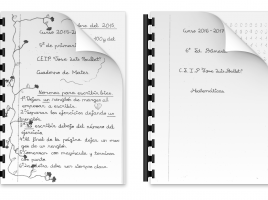 Curso 2015-
5º de primaria
C.E.I.P. "Pare Lluis Bullet"
Cuaderno de Mates
Normas para escribir bien.
1º Dejar un renglón de margen al
empezar a escribir
2º Separar los ejercicios dejando un
renglón.
3º Se escribe debajo del número del
ejercicio.
4º Al final de la página dejar un mar-
gen de un renglón.
5º Comenzar con mayúscula y terminar
con punto
6º
Curso 2016-2017
6º Ed. Primaria
Matemáticas